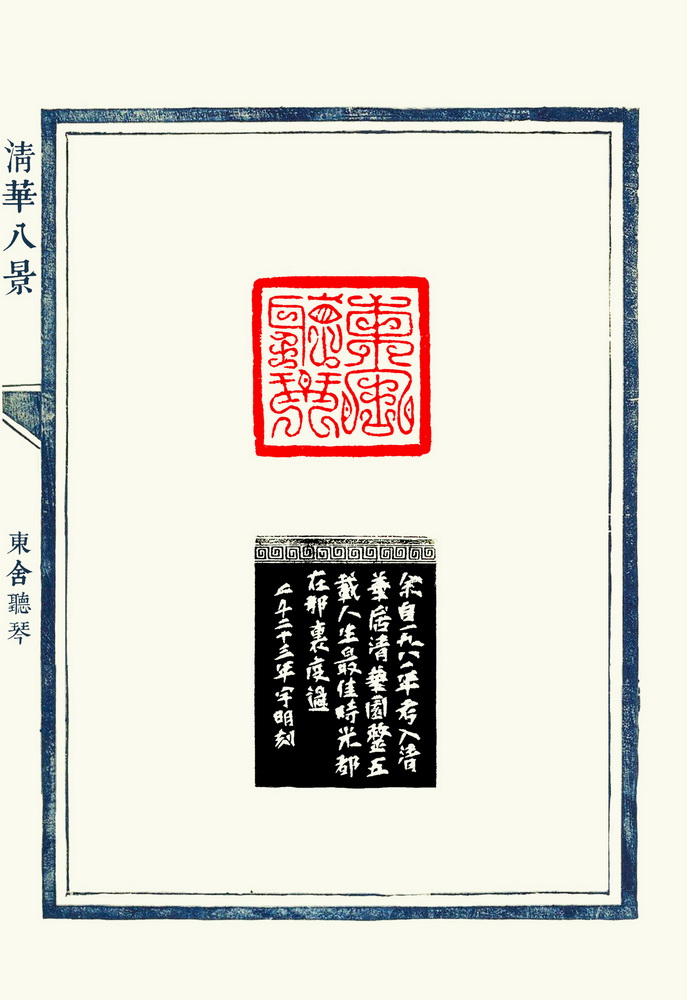 東
聽琴
余自一九八二年考入清
華居清華園整五
載人生最佳時光都
在那裏度過
二十三年宇明刻
清華八景
東舍聽琴